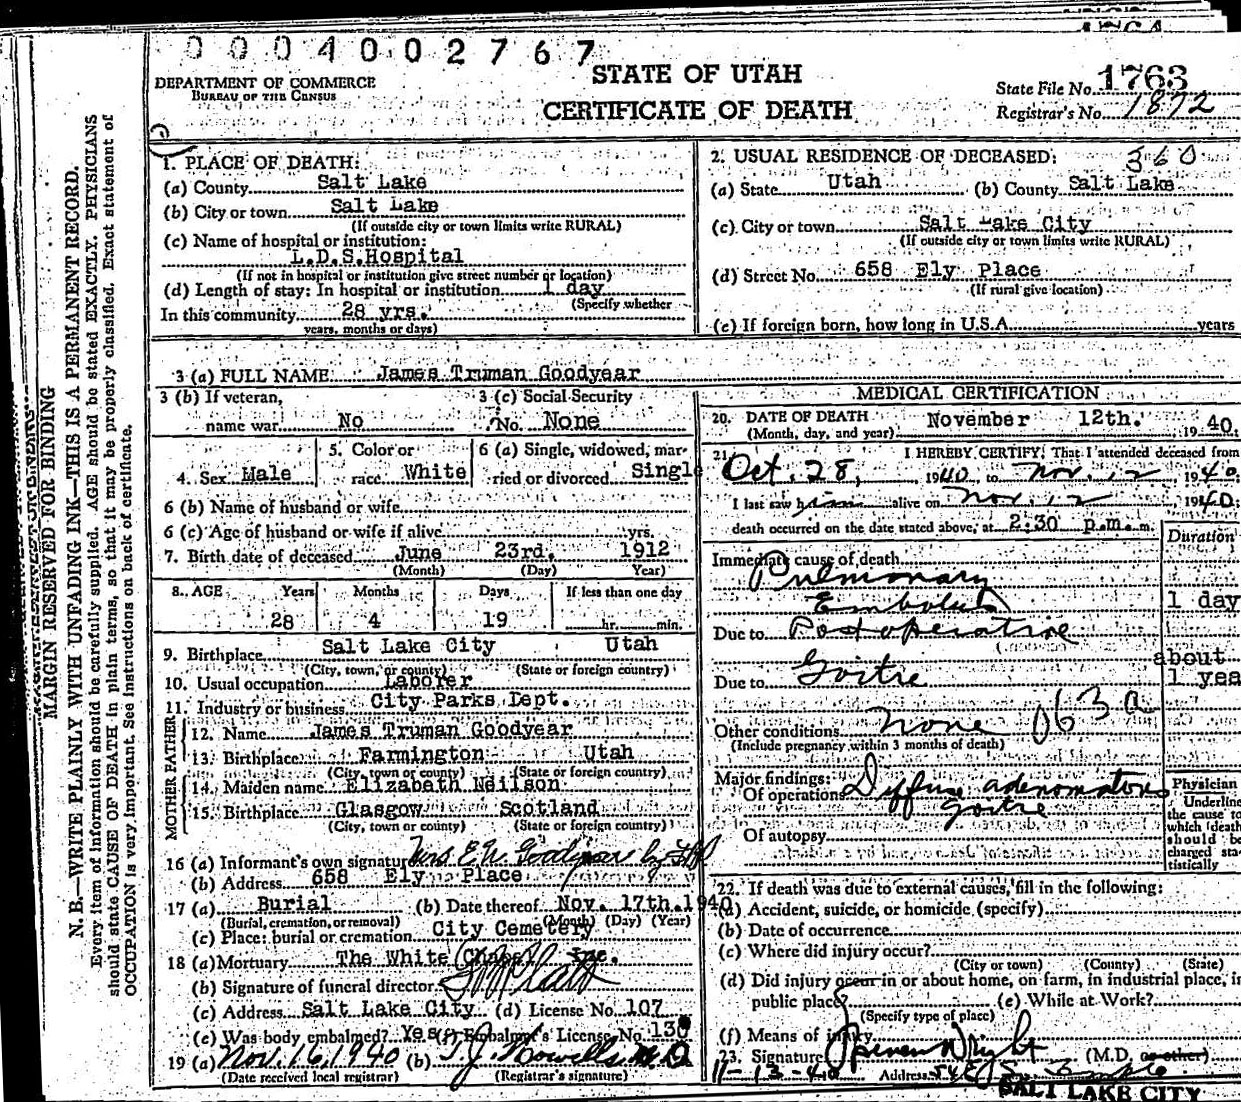 0004002767
DEPARTMENT OF COMMERCE
BUREAU OF THE CENSUS
STATE OF UTAH
CERTIFICATE OF DEATH
State File No. 1763
Registrar's No. 1872
MARGIN RESERVED FOR BINDING
N. B.—WRITE PLAINLY WITH UNFADING INK—THIS IS A PERMANENT RECORD.
Every item of information should be carefully supplied. AGE should be stated EXACTLY. PHYSICIANS
should state CAUSE OF DEATH in plain terms, so that it may be properly classified. Exact statement of
OCCUPATION is very important. See instructions on back of certificate.
1. PLACE OF DEATH:
(a) County Salt Lake
(b) City or town Salt Lake
(If outside city or town limits write RURAL)
(c) Name of hospital or institution:
L.D.S.Hospital
(If not in hospital or institution give street number or location)
(d) Length of stay: In hospital or institution 1 day
(Specify whether
In this community 28 yrs.
years, months or days)
2. USUAL RESIDENCE OF DECEASED: 360
(a) State Utah (b) County Salt Lake
(c) City or town Salt Lake City
(If outside city or town limits write RURAL)
(d) Street No. 658 Ely Place
(If rural give location)
(e) If foreign born, how long in U.S.A. years
3 (a) FULL NAME James Truman Goodyear
3 (b) If veteran, name war No
3 (c) Social Security No. None
4. Sex Male
5. Color or race White
6 (a) Single, widowed, married or divorced Single
6 (b) Name of husband or wife
6 (c) Age of husband or wife if alive yrs.
7. Birth date of deceased June 23rd. 1912
(Month) (Day) Year)
8. AGE Years Months Days If less than one day
28 4 19 hr. min.
9. Birthplace Salt Lake City Utah
(City, town, or county) (State or foreign country)
10. Usual occupation Laborer
11. Industry or business City Parks Dept.
FATHER
12. Name James Truman Goodyear
13. Birthplace Farmington Utah
(City, town or county) (State or foreign country)
MOTHER
14. Maiden name Elizabeth Neilson
15. Birthplace Glasgow Scotland
(City, town, or county) (State or foreign country)
16 (a) Informant's own signature Mrs E. N. Goodyear by
(b) Address 658 Ely Place
17 (a) Burial (b) Date thereof Nov. 17th.1940
(Burial, cremation, or removal) (Month) (Day) (Year)
(c) Place: burial or cremation City Cemetery
18 (a) Mortuary The White Chapel Inc.
(b) Signature of funeral director
(c) Address Salt Lake City (d) License No. 107
(e) Was body embalmed? Yes (f) Embalmer's License No.
19 (a) Nov. 16, 1940 (b) T. J. Howells M.D
(Date received local registrar) (Registrar's signature)
MEDICAL CERTIFICATION
20. DATE OF DEATH November 12th. 1940
(Month, day, and year)
21. I HEREBY CERTIFY, That I attended deceased from
Oct. 28, 1940 to Nov. 12 1940
I last saw him alive on Nov. 12 1940
death occurred on the date stated above, at 2:30 p.m. m.
Duration
Immediate cause of death
Pulmonary
Embolus 1 day
Due to Postoperative
Due to Goitre about 1 yea
Other conditions none 063a
(Include pregnancy within 3 months of death)
Major findings:
Of operations Diffuse adenomatous
goitre
Of autopsy
Physician
Underline
the cause to
which death
should be
charged sta-
tistically
22. If death was due to external causes, fill in the following:
(a) Accident, suicide, or homicide (specify)
(b) Date of occurrence
(c) Where did injury occur?
(City or town) (County) (State)
(d) Did injury occur in or about home, on farm, in industrial place, in
public place? (e) While at Work?
(Specify type of place)
(f) Means of injury
23. Signature Wright (M.D. or other)
11-13-40 Address
SALT LAKE CITY